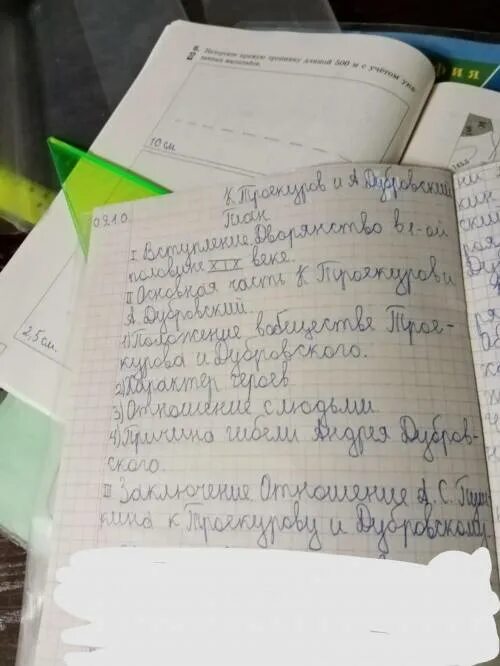 8. Начертите прямую тропинку длиной 500 м с учётом ука-
занных масштабов.
10 см
2,5 см
фия
К Троекуров и А Дубровский
09.10.
План
I Вступление. Дворянство в 1-ой
половине XIX веке.
II Основная часть К Троекуров и
А Дубровский.
1) Положение вобществе Трое-
курова и Дубровского.
2) Характер героев.
3) Отношение с людьми.
4) Причина гибели Андрея Дубров-
ского.
III Заключение Отношение А.С.Пуш-
кина к Троекурову и Дубровскому.